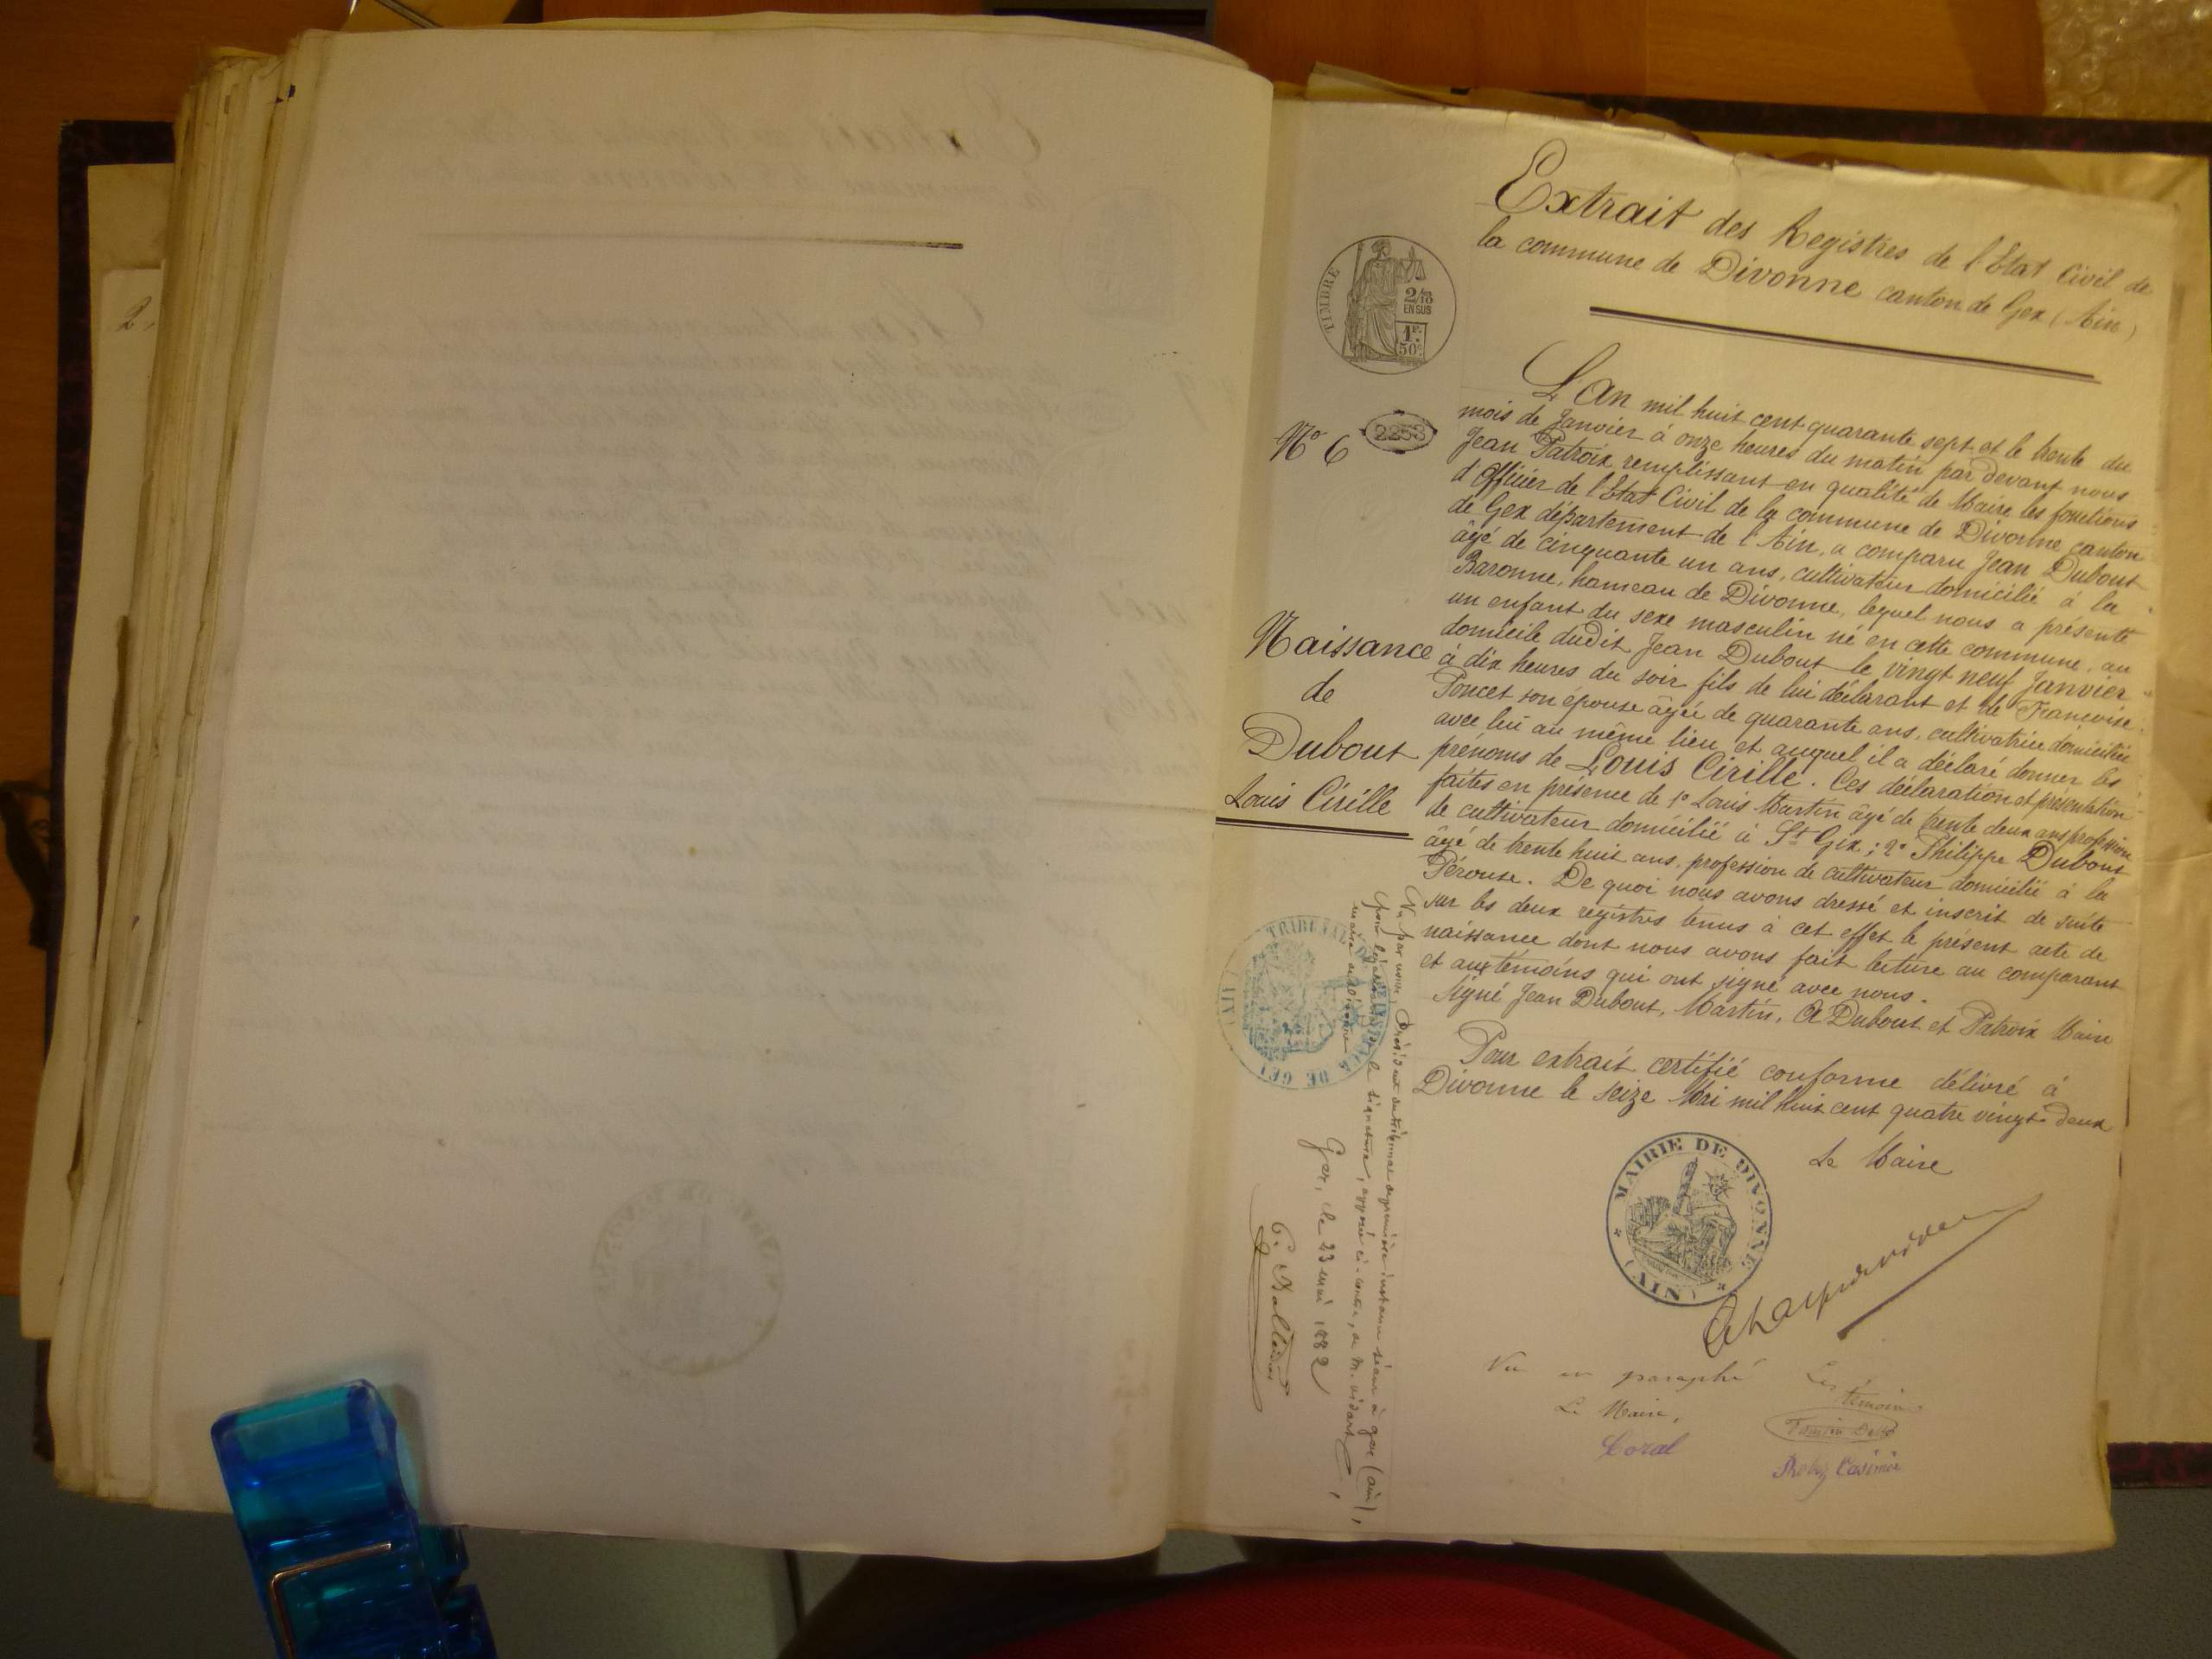 2.
Extrait des Registres de l'Etat Civil de
la commune de Divonne canton de Gex (Ain)
TIMBRE
2/10
EN SUS
1F.
50c
L'An mil huit cent quarante sept et le trente du
mois de Janvier à onze heures du matin par devant nous
Jean Patroix remplissant en qualité de Maire les fonctions
d'Officier de l'Etat Civil de la commune de Divonne canton
de Gex département de l'Ain, a comparu Jean Dubout
âgé de cinquante un ans, cultivateur domicilié à la
Baronne, hameau de Divonne, lequel nous a présenté
un enfant du sexe masculin né en cette commune, au
domicile dudit Jean Dubout le vingt neuf Janvier
à dix heures du soir fils de lui déclarant et de Françoise
Poncet son épouse âgée de quarante ans, cultivatrice domiciliée
avec lui au même lieu et auquel il a déclaré donner les
prénoms de Louis Cirille. Ces déclaration et présentation
faites en présence de 1° Louis Martin âgé de trente deux ans profession
de cultivateur domicilié à St Gix; 2° Philippe Dubout
âgé de trente huit ans, profession de cultivateur domicilié à la
Pérouse. De quoi nous avons dressé et inscrit de suite
sur les deux registres tenus à cet effet le présent acte de
naissance dont nous avons fait lecture au comparant
et aux témoins qui ont signé avec nous.
Signé Jean Dubout, Martin, Dubout et Patroix Maire
Pour extrait certifié conforme délivré à
Divonne le seize Mai mil huit cent quatre vingt deux
Le Maire
N° 6
2253
Naissance
de
Dubout
Louis Cirille
MAIRIE DE DIVONNE
(AIN)
TRIBUNAL DE GEX
(AIN)
Vu par nous, Président du tribunal de première instance séant à Gex (Ain),
pour légalisation de la signature, apposée ci-contre, de M. Vidart,
maire de Divonne
Gex, le 23 mai 1882
Vu et paraphé
Le Maire,
Coral
Les témoins
Casimir